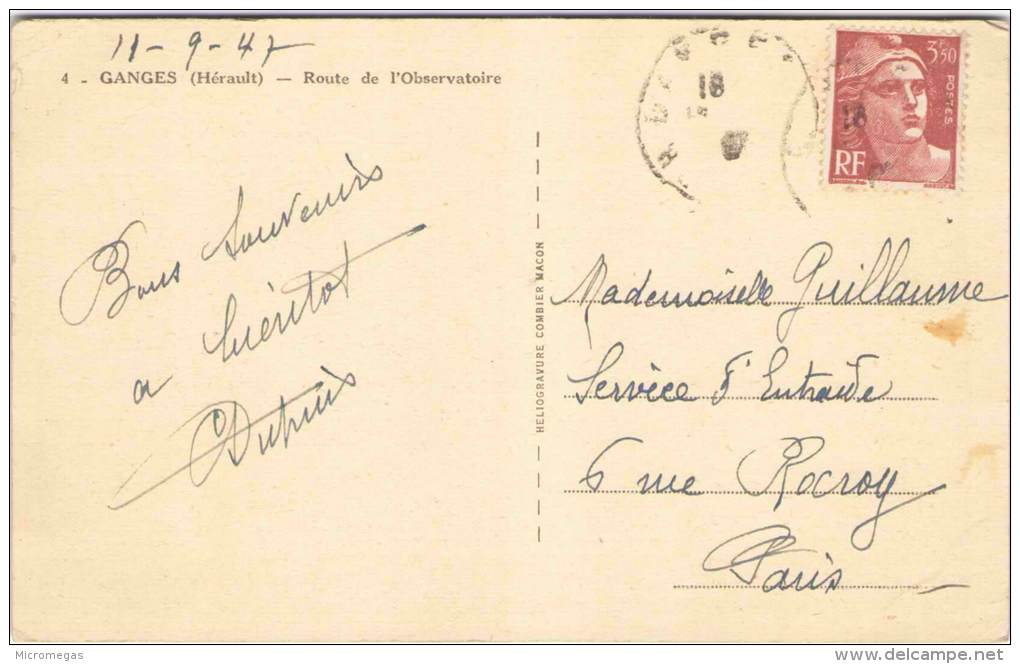 11-9-47
4 - GANGES (Hérault) — Route de l'Observatoire
18
18
3F50
POSTES
RF
Bons Souvenirs
a bientot
Dupuis
HELIOGRAVURE COMBIER MACON
Mademoiselle Guillaume
Service d'Entraide
6 rue Rocroy
Paris
Micromegas
www.delcampe.net